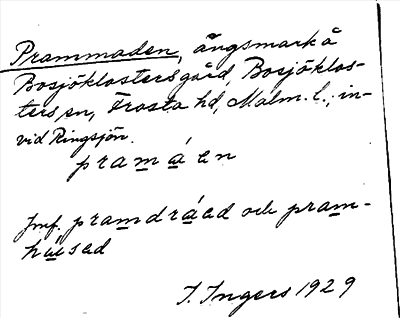 Prammaden, ängsmark å
Bosjöklosters gård, Bosjöklos-
ters sn, Frosta hd, Malm. l., in-
vid Ringsjön.
pramáen
Jmf. pramdráed och pram-
húsed
I. Ingers 1929